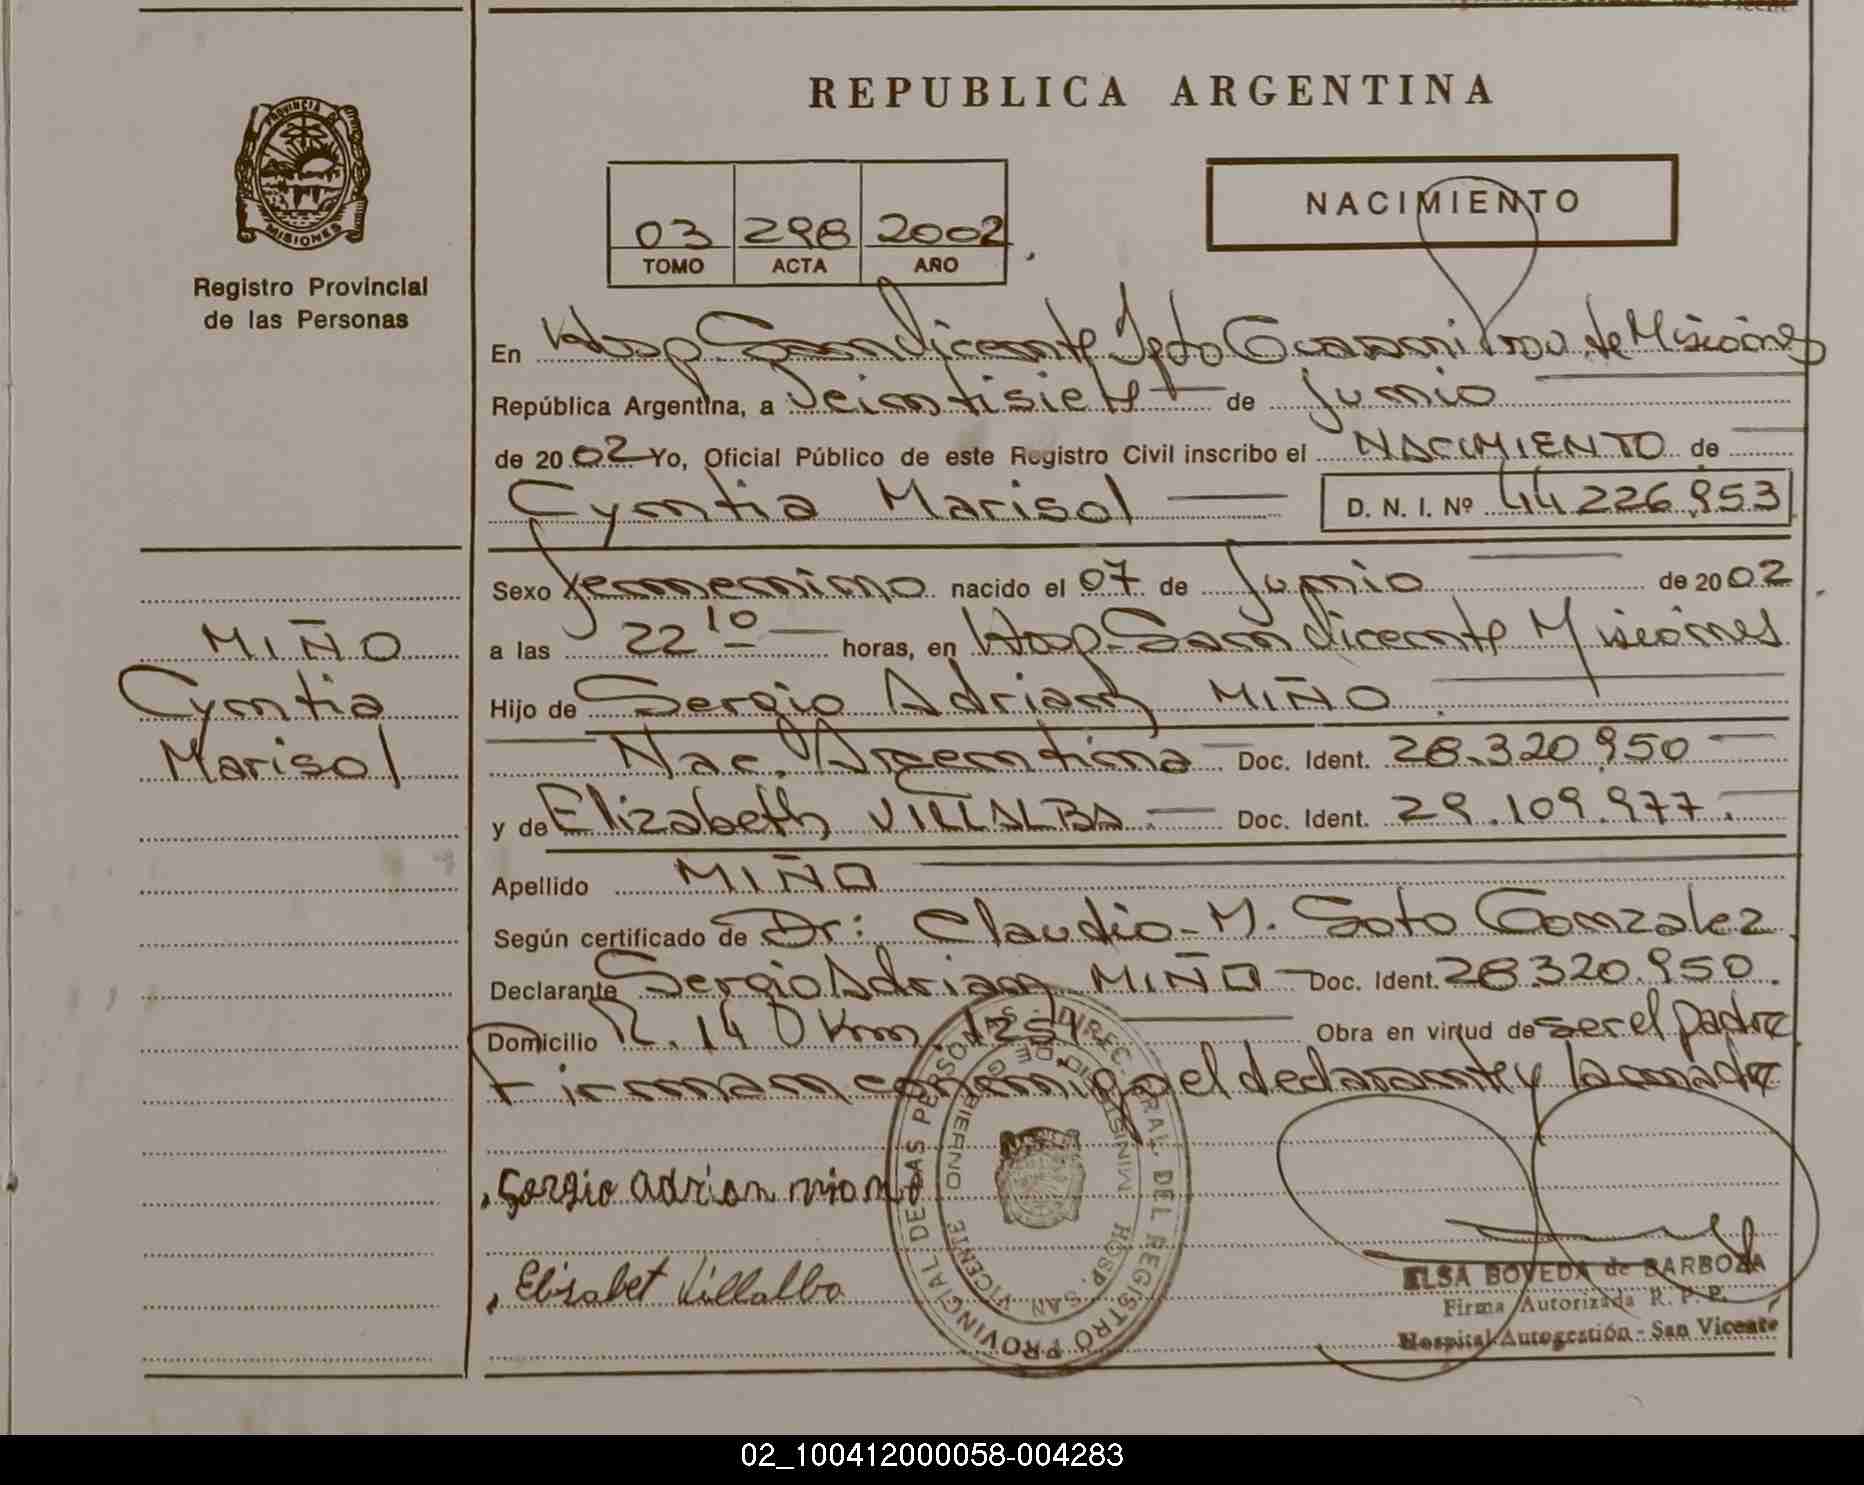 REPUBLICA ARGENTINA
PROVINCIA DE
MISIONES
Registro Provincial
de las Personas
03 298 2002
TOMO ACTA AÑO
NACIMIENTO
En Hosp. San Vicente Dpto Guarani Prov. de Misiones
República Argentina, a Veintisiete de Junio
de 2002 Yo, Oficial Público de este Registro Civil inscribo el NACIMIENTO de
Cyntia Marisol D. N. I. Nº 44 226.953
Sexo femenino nacido el 07 de Junio de 2002
a las 22 10 horas, en Hosp. San Vicente Misiones
Hijo de Sergio Adrian MIÑO
Nac. Argentina Doc. Ident. 28.320.950
y de Elizabeth VILLALBA Doc. Ident. 29.109.977
Apellido MIÑO
Según certificado de Dr: Claudio M. Soto Gonzalez
Declarante Sergio Adrian MIÑO Doc. Ident. 28.320.950
Domicilio R. 14 Km. 1251 Obra en virtud de ser el padre
Firman conmigo el declarante y la madre
MIÑO
Cyntia
Marisol
Sergio adrian
Elisabet Villalba
DIREC. GRAL. DEL REGISTRO PROVINCIAL DE LAS PERSONAS
MINISTERIO DE GOBIERNO
HOSP. SAN VICENTE
ELSA BOVEDA de BARBOZA
Firma Autorizada R. P. P.
Hospital Autogestión - San Vicente
02_100412000058-004283